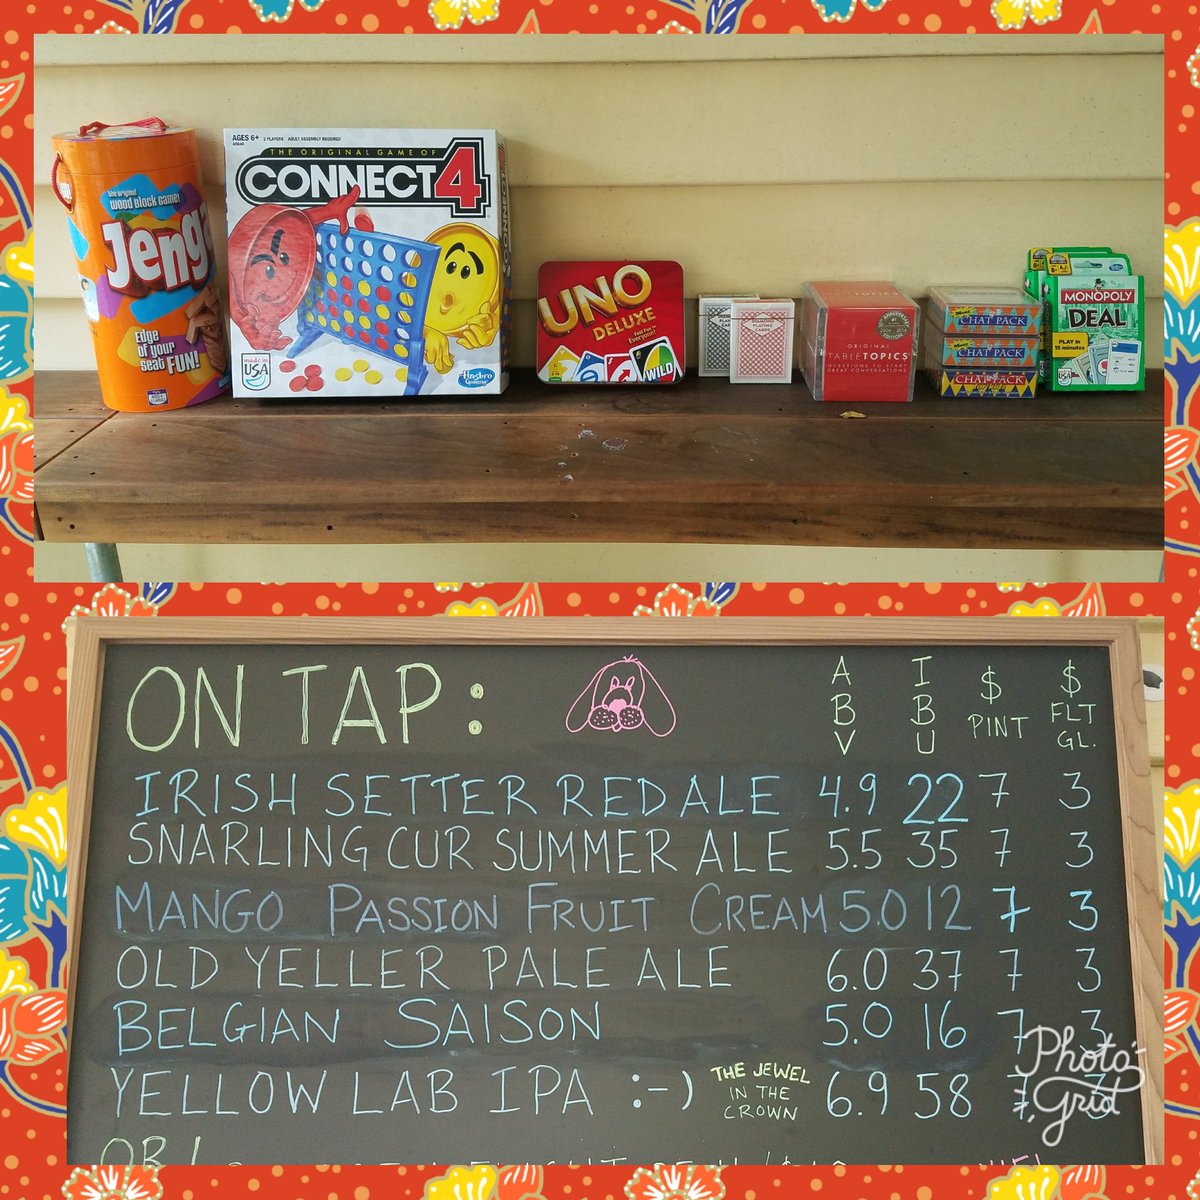 the original
wood block game!
Jenga
Edge
of your
seat FUN!
AGES 6+ 2 PLAYERS ADULT ASSEMBLY REQUIRED
THE ORIGINAL GAME OF
CONNECT 4
made in
USA
Hasbro
Gaming
CONNECT
UNO
DELUXE
WILD
PLAYING CARDS
TABLETOPICS
ORIGINAL
TABLETOPICS
QUESTIONS TO START
GREAT CONVERSATIONS
CHAT PACK
CHAT PACK
CHAT PACK
for kids
MONOPOLY
DEAL
PLAY in
15 minutes
USA
ON TAP: ABV IBU $ PINT $ FLT GL.
IRISH SETTER RED ALE 4.9 22 7 3
SNARLING CUR SUMMER ALE 5.5 35 7 3
MANGO PASSION FRUIT CREAM 5.0 12 7 3
OLD YELLER PALE ALE 6.0 37 7 3
BELGIAN SAISON 5.0 16 7 3
YELLOW LAB IPA :-) THE JEWEL IN THE CROWN 6.9 58 7 3
Photo
Grid